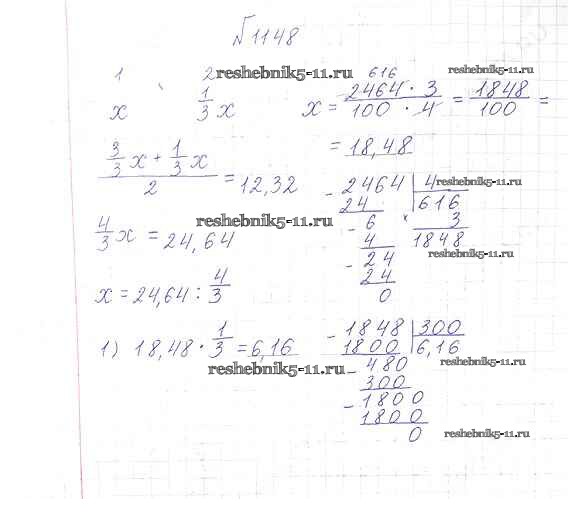 №1148
1 2 reshebnik5-11.ru
x 1/3 x x = 2464 · 3 / 100 · 4 = 1848 / 100 = 616
3/3 x + 1/3 x / 2 = 12,32 = 18,48
4/3 x = 24,64 reshebnik5-11.ru
x = 24,64 : 4/3
- 2464 | 4 reshebnik5-11.ru
24 616
- 6 × 3
4 1848
- 24 reshebnik5-11.ru
24
0
1) 18,48 · 1/3 = 6,16
reshebnik5-11.ru
- 1848 | 300
1800 6,16
- 480 reshebnik5-11.ru
300
- 1800
1800
0 reshebnik5-11.ru